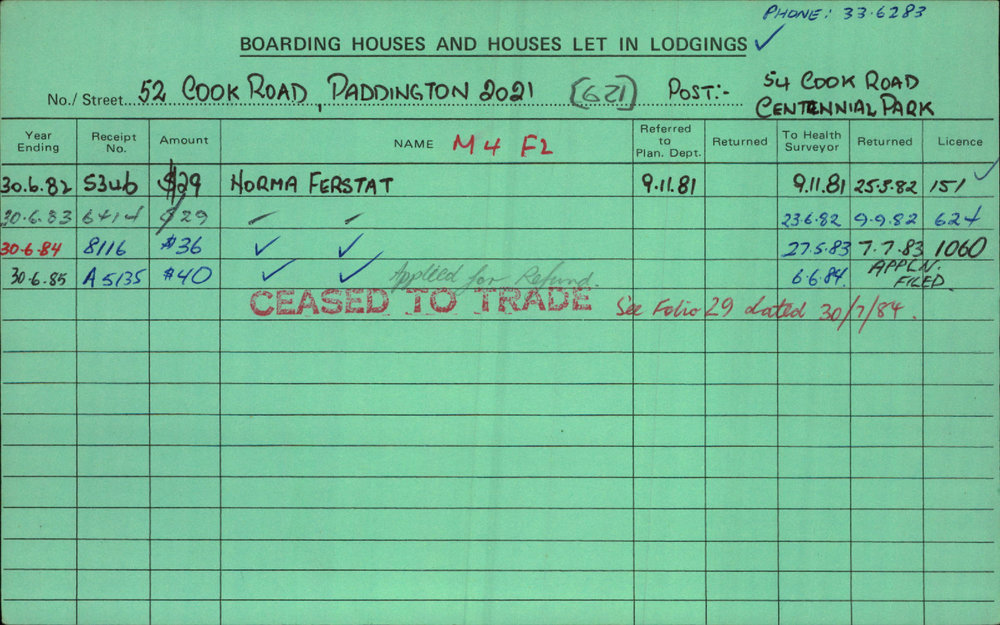 PHONE: 33·6283
BOARDING HOUSES AND HOUSES LET IN LODGINGS ✓
No./ Street 52 COOK ROAD, PADDINGTON 2021 (621) POST:- 54 COOK ROAD
CENTENNIAL PARK
Year Ending Receipt No. Amount NAME M 4 F2 Referred to Plan. Dept. Returned To Health Surveyor Returned Licence
30.6.82 $29 NORMA FERSTAT 9.11.81 9.11.81 25.5.82 151 ✓
30.6.83 6414 $29 23.6.82 9.9.82 624
30·6·84 8116 $36 ✓ ✓ 27.5.83 7.7.83 1060
30·6.85 A5135 $40 ✓ ✓ Applied for Refund 6·6.84. APPLN. FILED.
CEASED TO TRADE See Folio 29 dated 30/7/84.